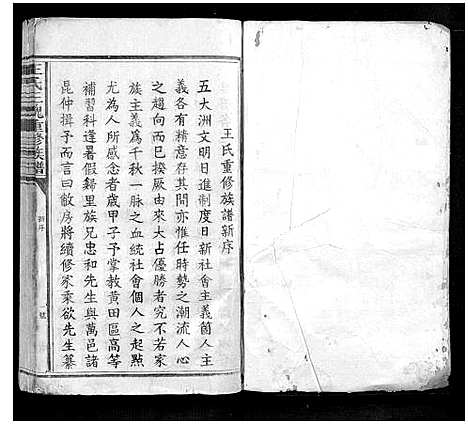 王氏重修族譜新序
五大洲文明日進制度日新社會主義箇人主
義各有精意存其間亦惟任時勢之潮流人心
之趨向而已揆厥由來大占優勝者究不若家
族主義為千秋一脉之血統社會個人之起點
尤為人所感念者歲甲子予掌教黃田區高等
補習科逢暑假歸里族兄忠和先生與萬邑諸
昆仲揖予而言曰敝房將續修家乘欲先生纂
王氏三槐重修族譜
新序